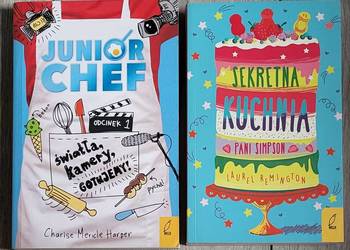 JUNIOR
CHEF
ODCINEK 1
światła,
kamery,
GOTUJEMY!
pycha!
Charise Mericle Harper
SEKRETNA
KUCHNIA
PANI SIMPSON
LAUREL REMINGTON